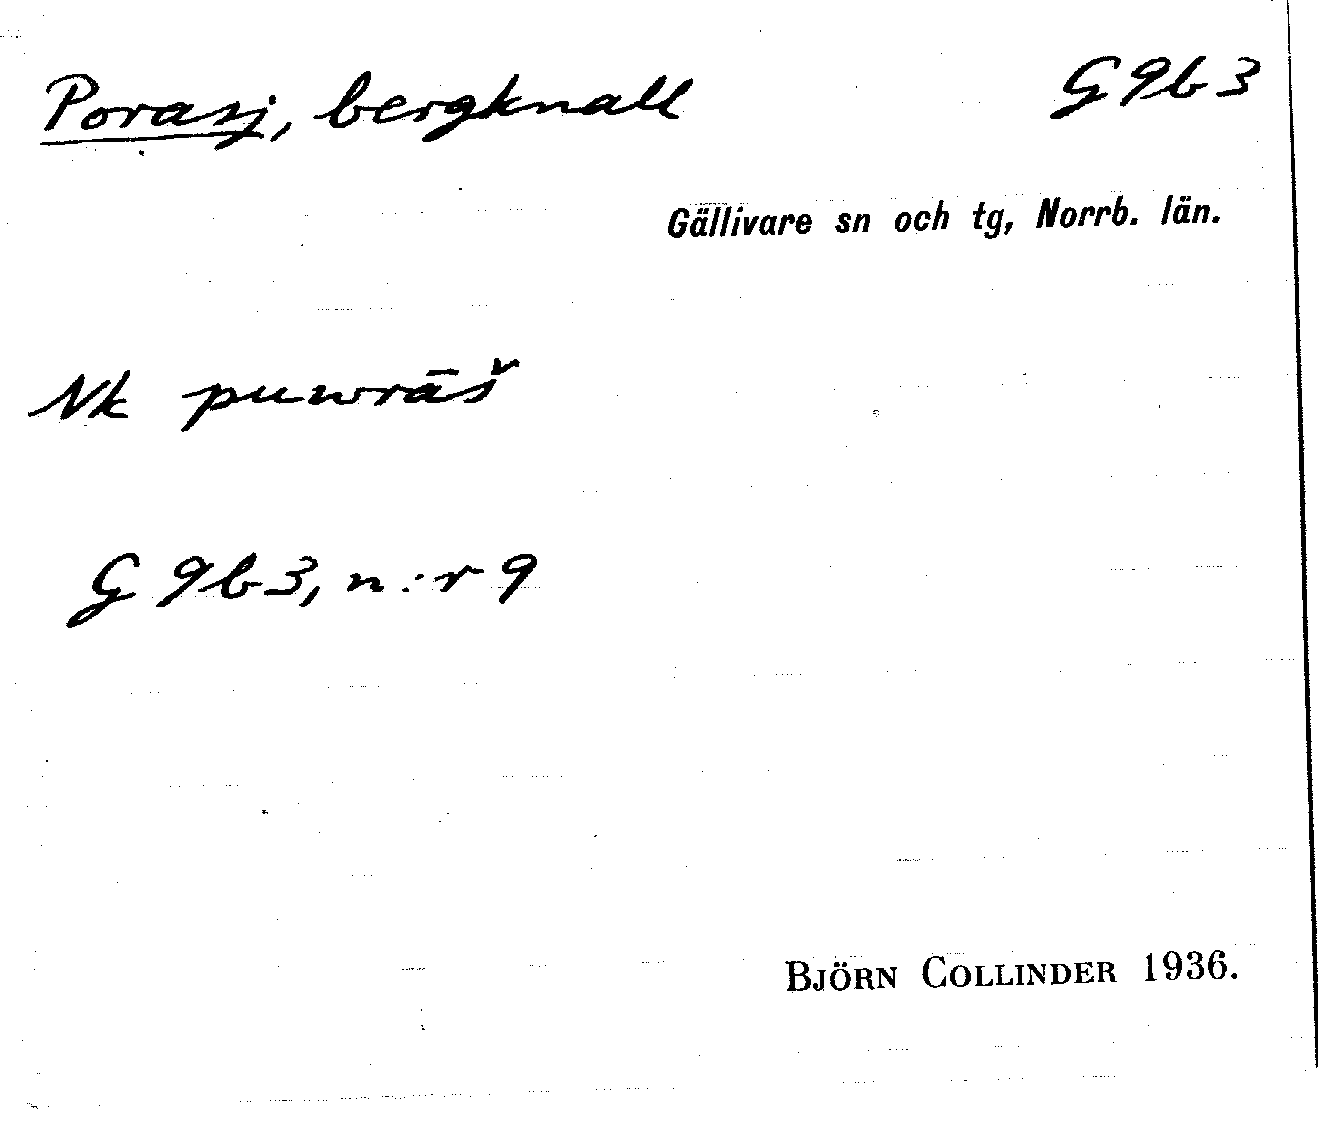 Porasj, bergknall G 9b 3
Gällivare sn och tg, Norrb. län.
Nk puwrāš
G 9b 3, n:r 9
BJÖRN COLLINDER 1936.